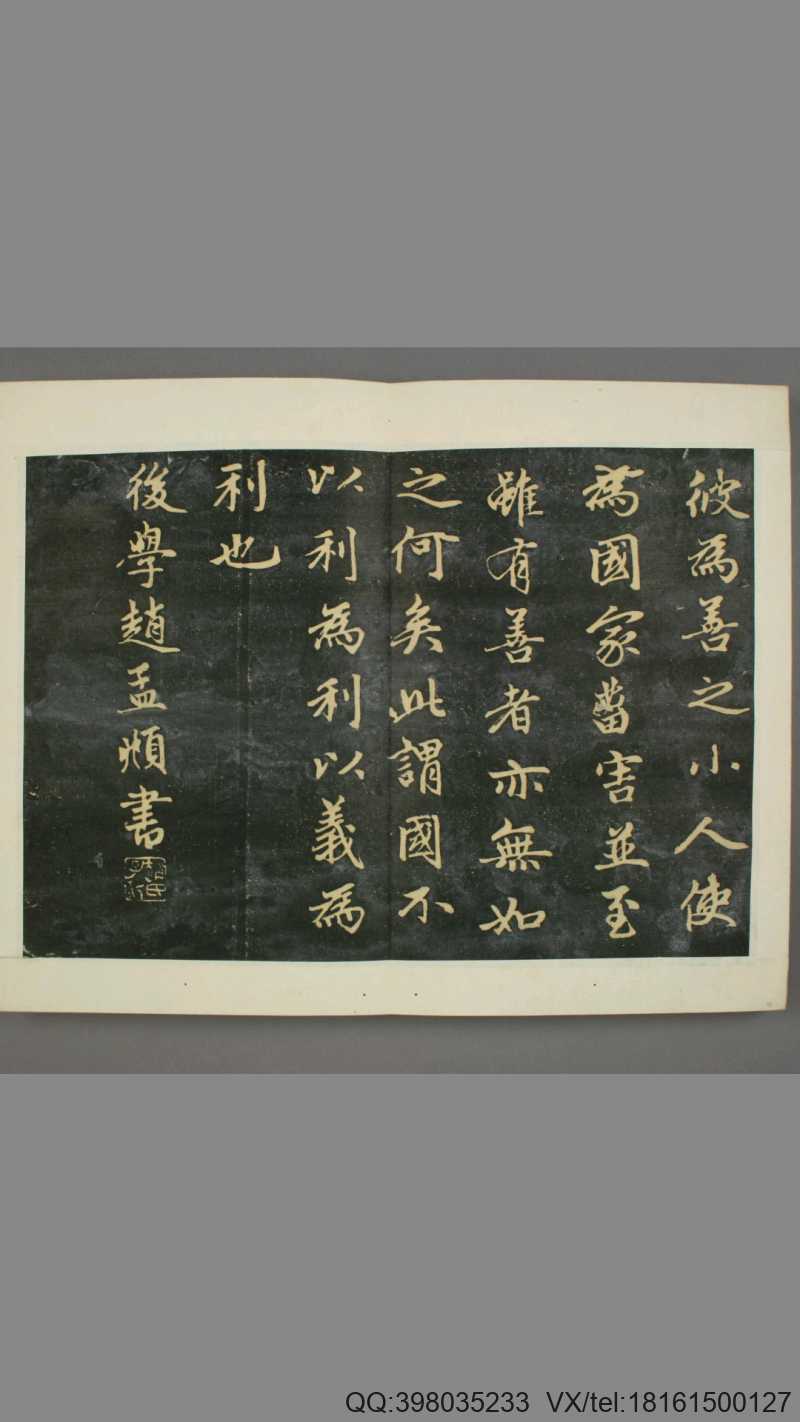 彼為善之小人使
為國家菑害並至
雖有善者亦無如
之何矣此謂國不
以利為利以義為
利也
後學趙孟頫書
QQ:398035233 VX/tel:18161500127